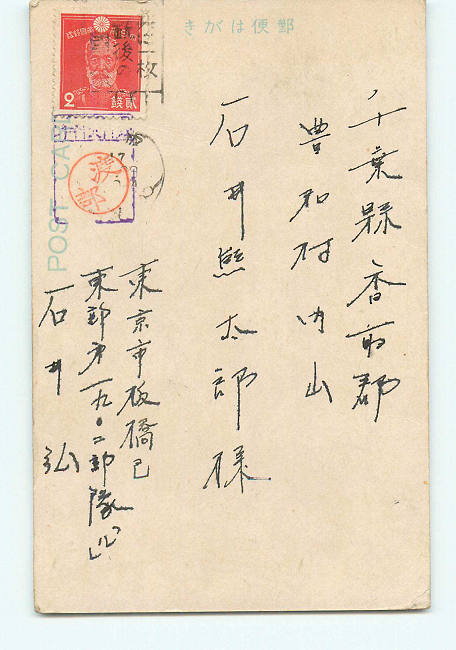 きがは便郵
POST CARD
貳錢
2
一枚
渡部
千葉縣香取郡
豊和村内山
石井熊太郎様
東京市板橋区
東部第一九〇二部隊
石井弘